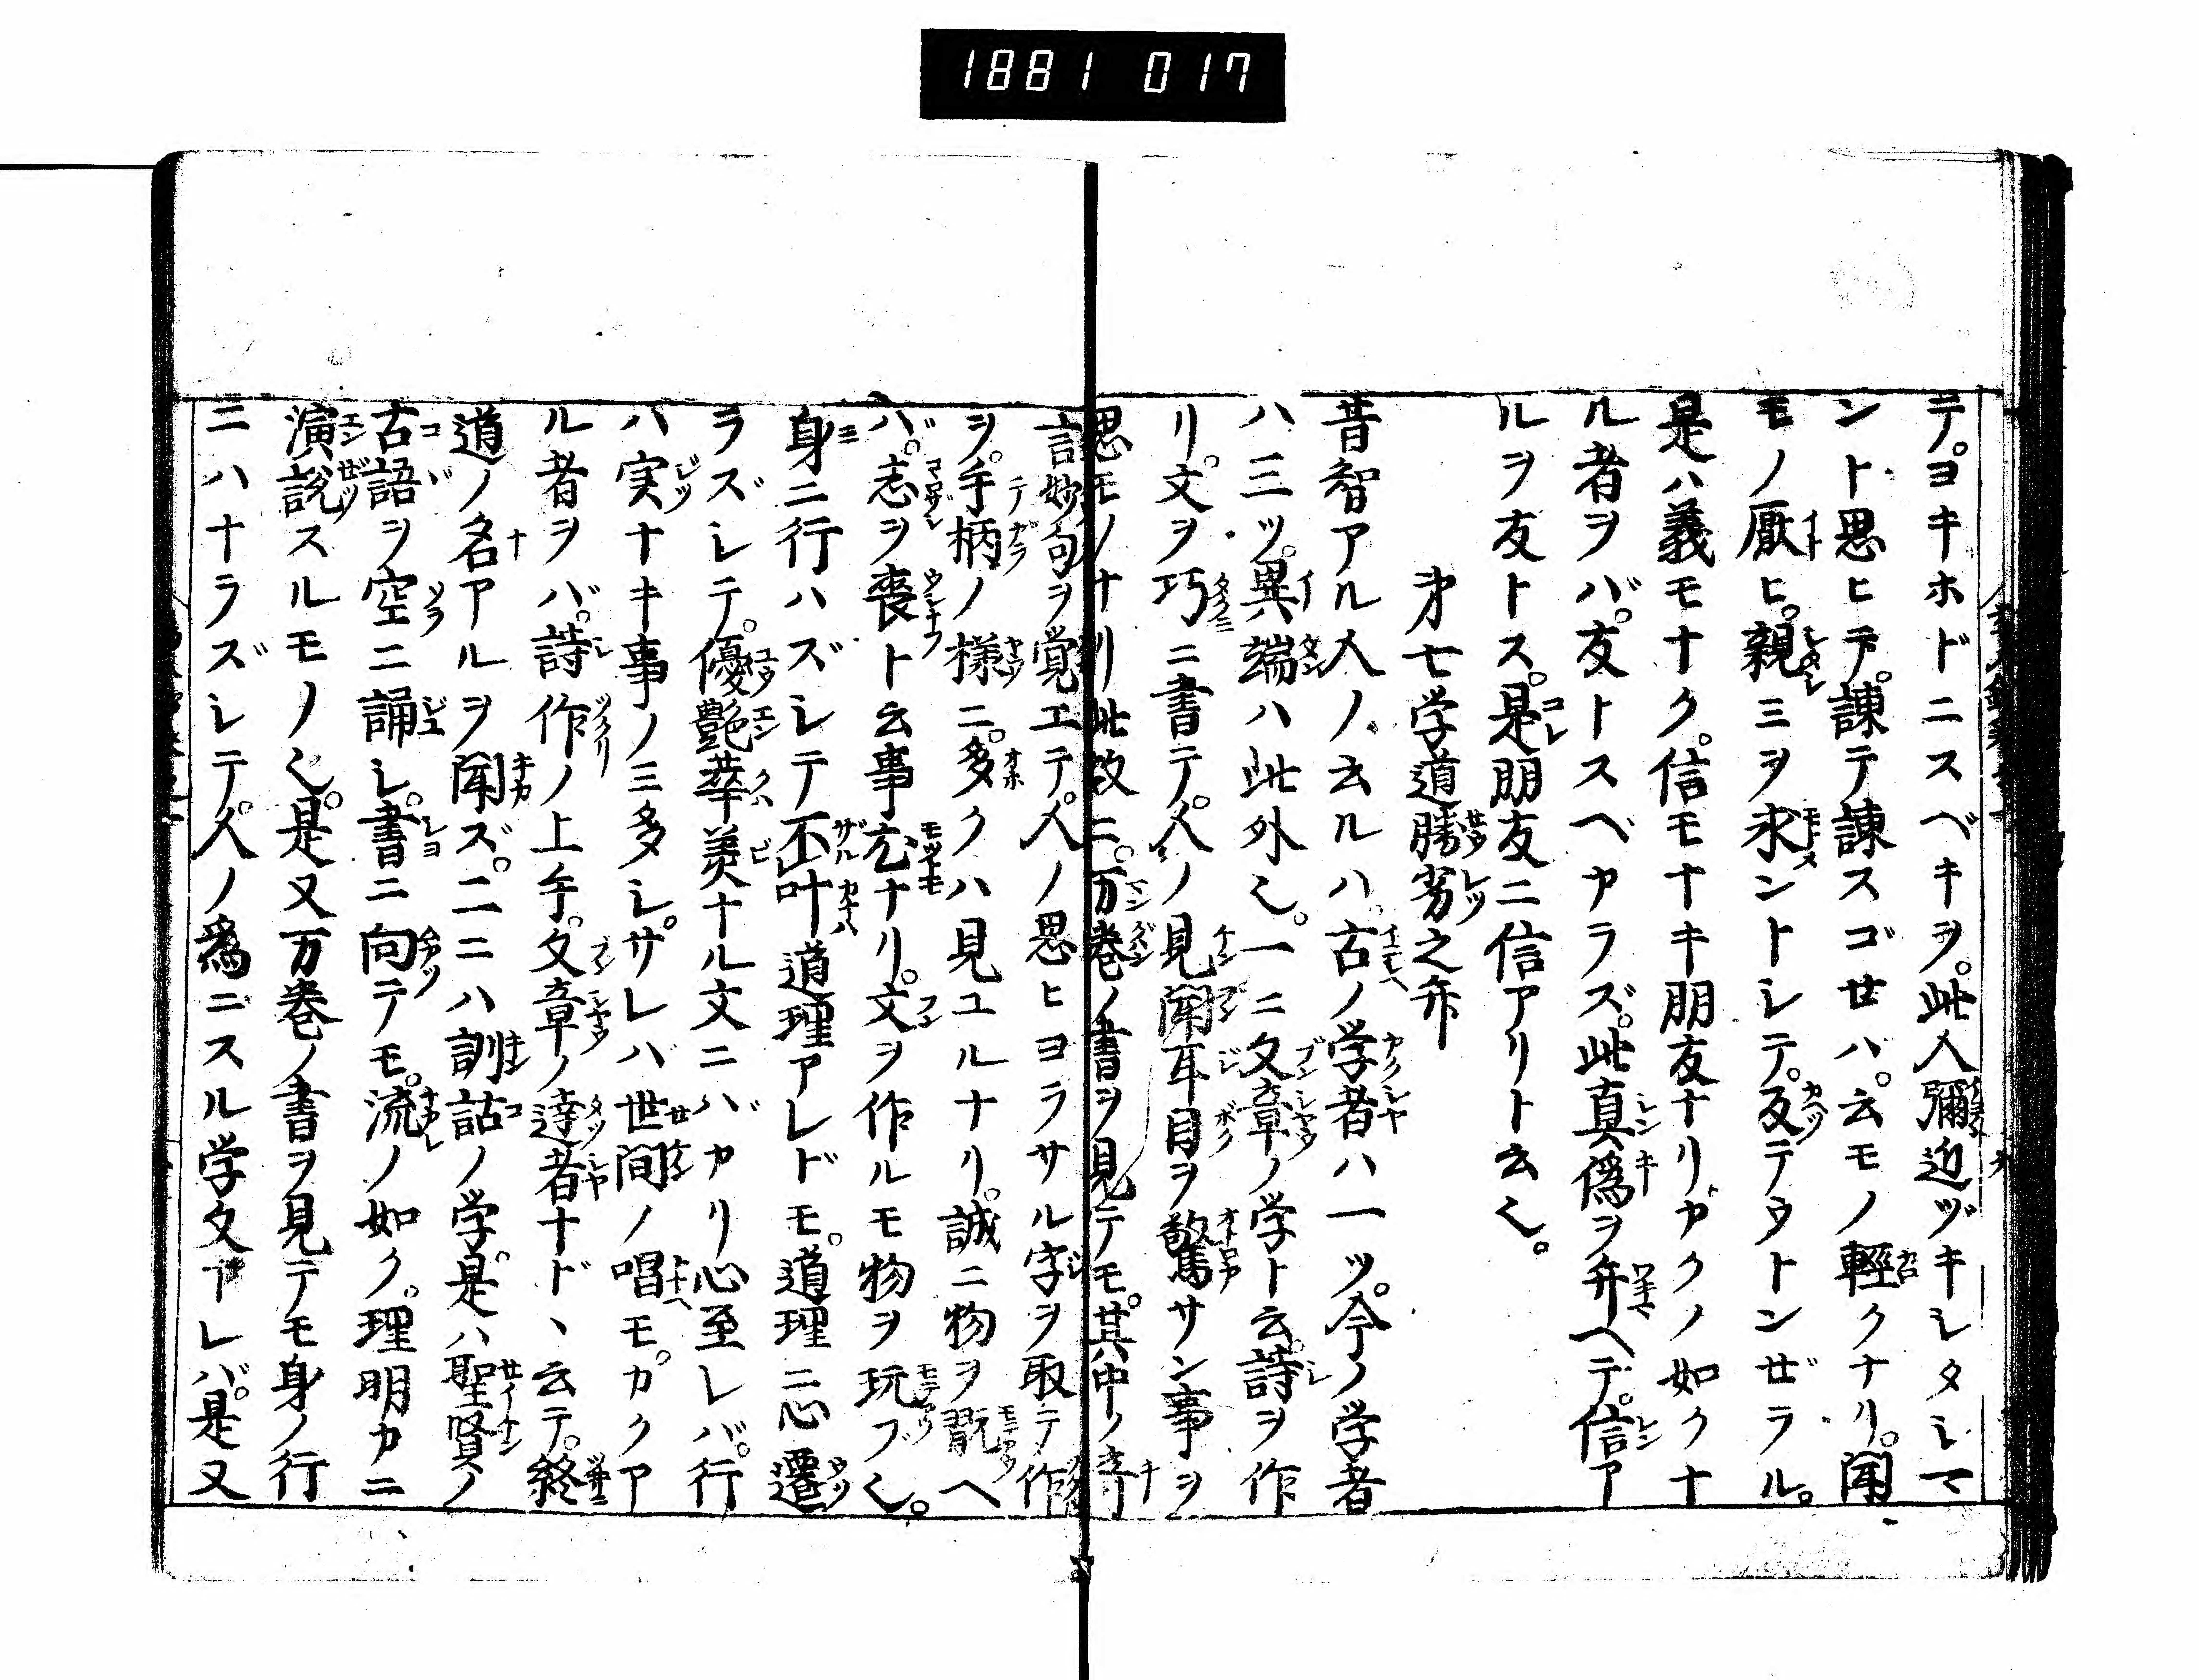 1881 017
テ。ヨキホドニスベキヲ。此人彌近ヅキレタミマ
ント思ヒテ。諫テ諫スゴせハ。云モノ輕クナリ。聞
モノ厭ヒ。親ミヲ求ントレテ。反テウトンぜラル。
是ハ義モナク。信モナキ朋友ナリ。カクノ如クナ
ル者ヲバ。友トスベカラズ。此真偽ヲ弁ヘテ。信ア
ルヲ友トス。是朋友ニ信アリト云〻。
㐧七学道勝劣之弁
昔智アル人ノ云ルハ。古ノ学者ハ一ツ。今ノ学者
ハ三ツ。異端ハ此外〻。一ニ文章ノ学ト云。詩ヲ作
リ。文ヲ巧ニ書テ。人ノ見聞耳目ヲ驚サン事ヲ
思モノナリ此故ニ。万巻ノ書ヲ見テモ。其中ノ奇
言妙句ヲ覚エテ。人ノ思ヒヨラサル字ヲ取テ作
ヲ。手柄ノ様ニ。多クハ見ユルナリ。誠ニ物ヲ翫ヘ
バ。志ヲ喪ト云事尤ナリ。文ヲ作ルモ物ヲ玩ブ〻。
身ニ行ハズレテ不叶道理アレドモ。道理ニ心遷
ラズレテ。優艶華美ナル文ニバカリ心至レバ。行
ハ実ナキ事ノミ多シ。サレバ世間ノ唱モ。カクア
ル者ヲバ。詩作ノ上手。文章ノ達者ナド、云テ。終
道ノ名アルヲ聞ズ。二ニハ訓詁ノ学。是ハ聖賢ノ
古語ヲ空ニ誦レ。書ニ向テモ。流ノ如ク。理明カニ
演説スルモノ〻。是又万巻ノ書ヲ見テモ身ノ行
ニハナラズレテ。人ノ爲ニスル学文ナレバ。是又